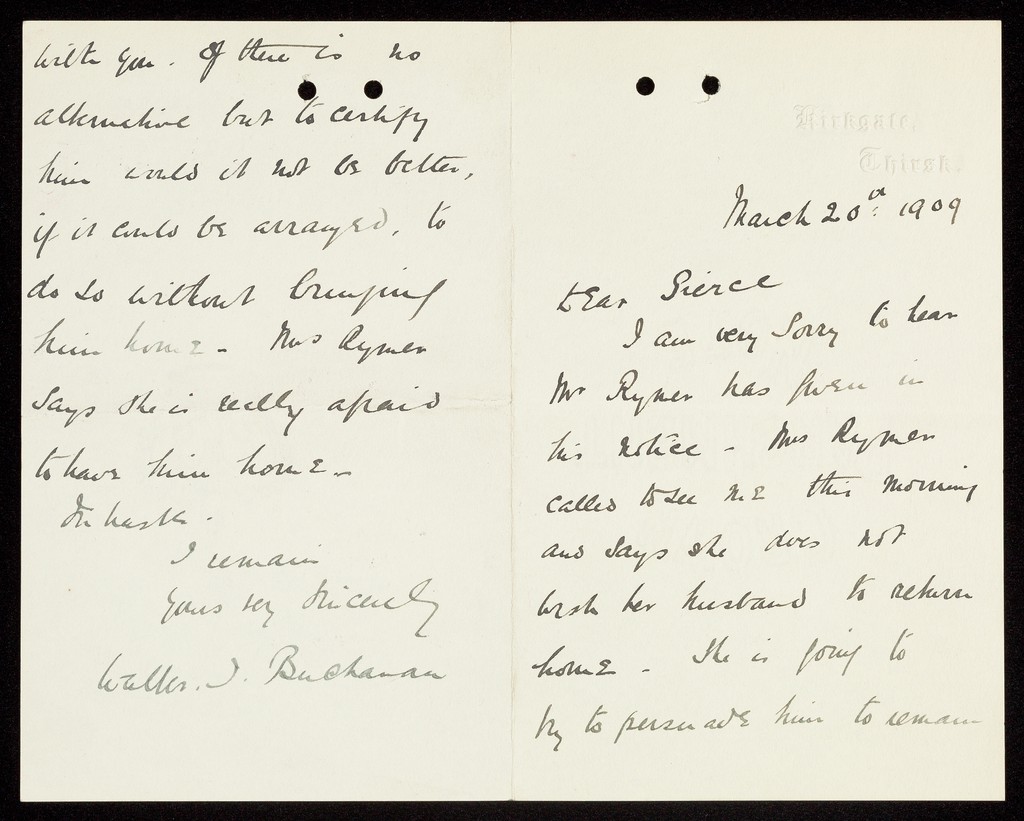 Kirkgate,
Thirsk.
March 20th: 1909
Dear Pierce
I am very sorry to hear
Mr Rymer has given in
his notice - Mrs Rymer
called to see me this morning
and says she does not
wish her husband to return
home - She is going to
try to persuade him to remain
with you. If there is no
alternative but to certify
him would it not be better,
if it could be arranged, to
do so without bringing
him home - Mrs Rymer
says she is really afraid
to have him home -
In haste.
I remain
Yours very sincerely
Walter. J. Buchanan